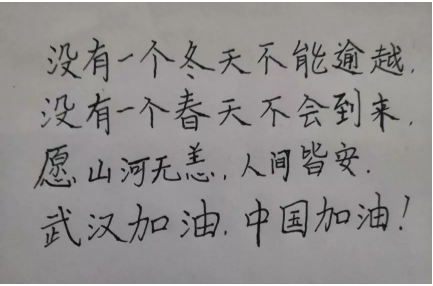 没有一个冬天不能逾越.
没有一个春天不会到来.
愿山河无恙,人间皆安.
武汉加油.中国加油!